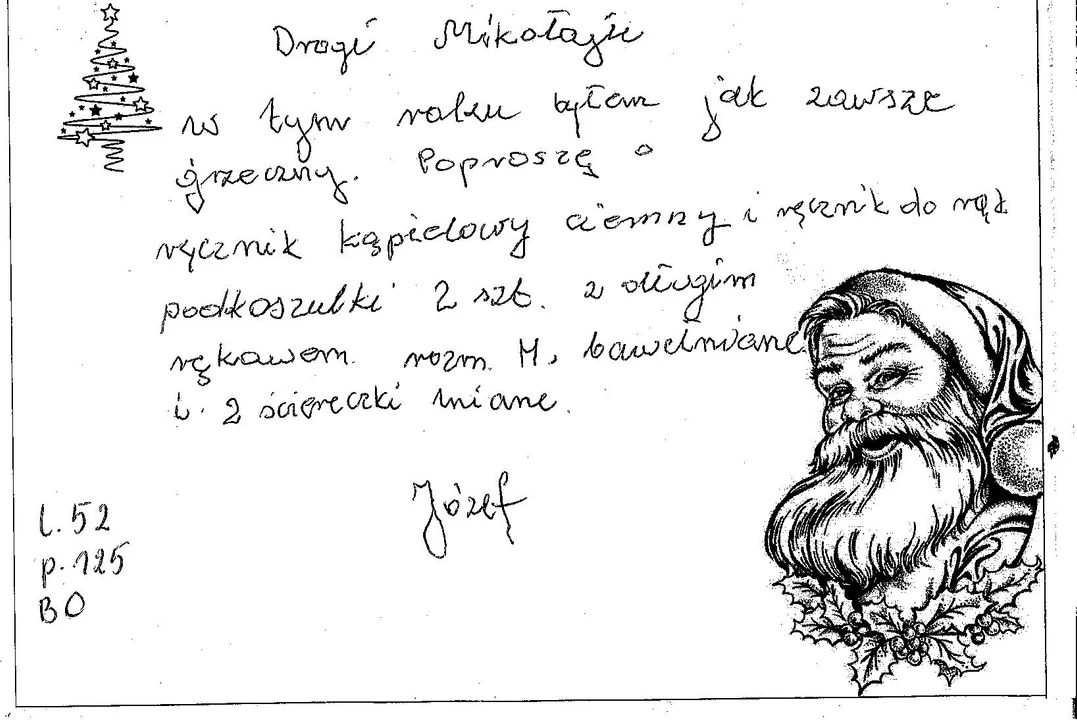 Drogi Mikołaju
w tym roku byłem jak zawsze
grzeczny. Poproszę o
ręcznik kąpielowy ciemny i ręcznik do rąk
podkoszulki 2 szt. z długim
rękawem rozm. M, bawełniane
i 2 ściereczki lniane.
Józef
l. 52
p. 125
BO